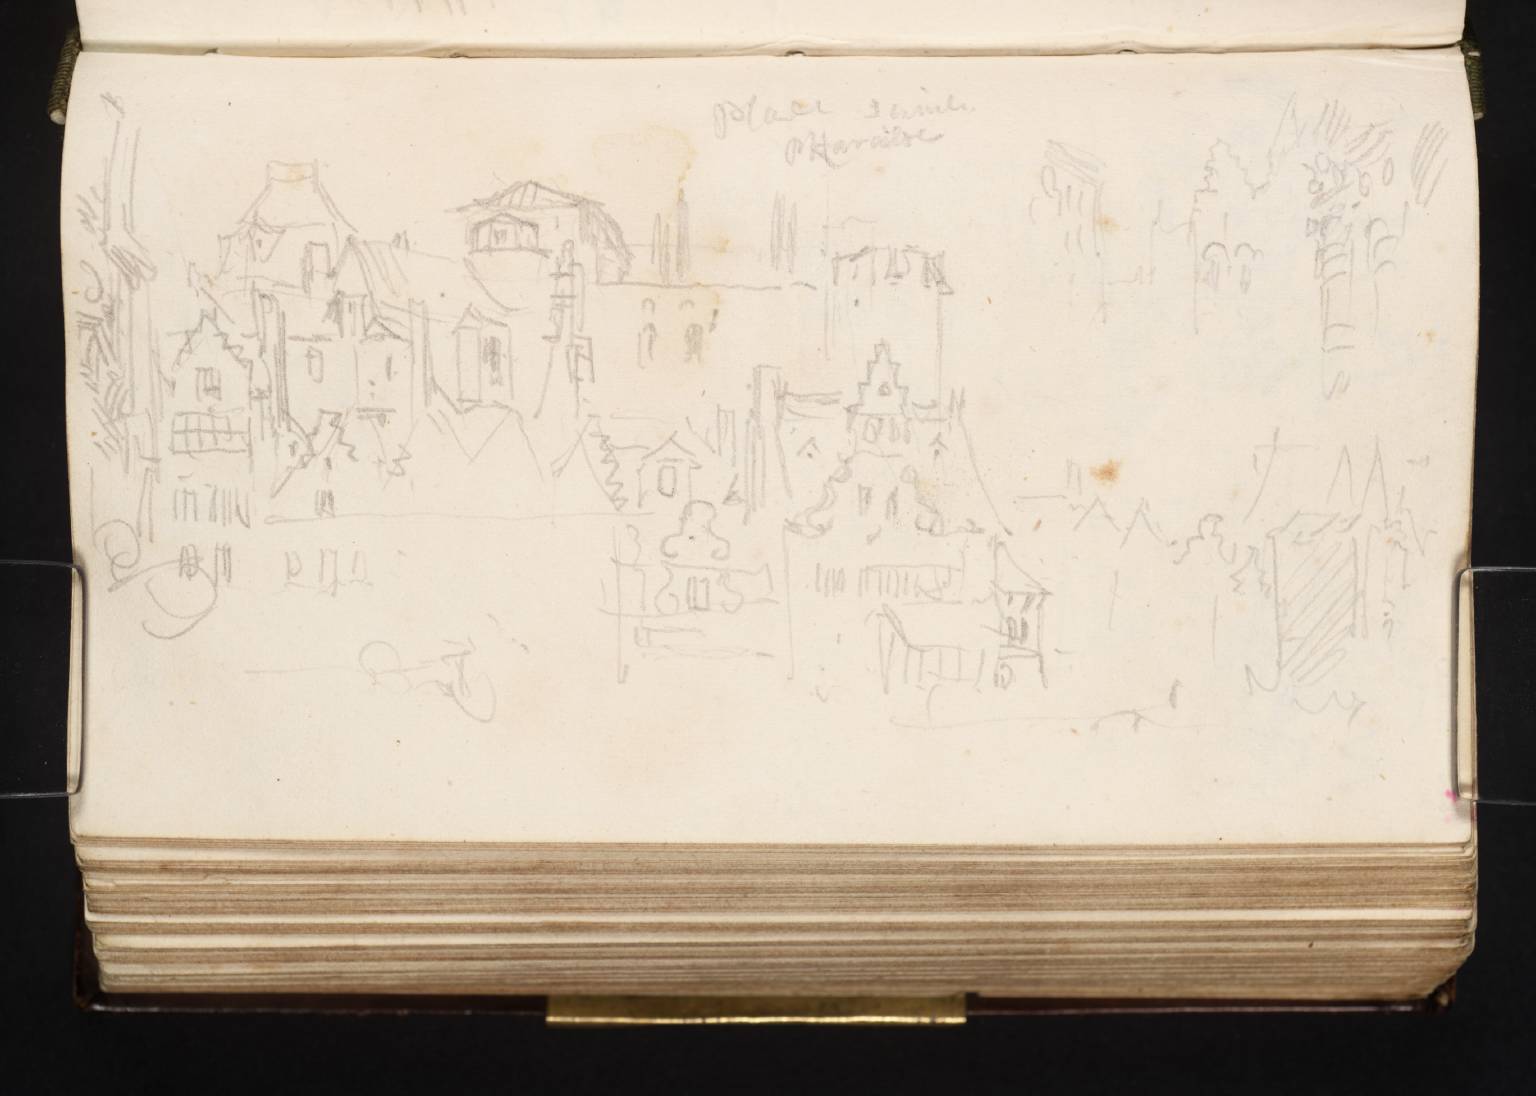 Place Saint
Pharailde